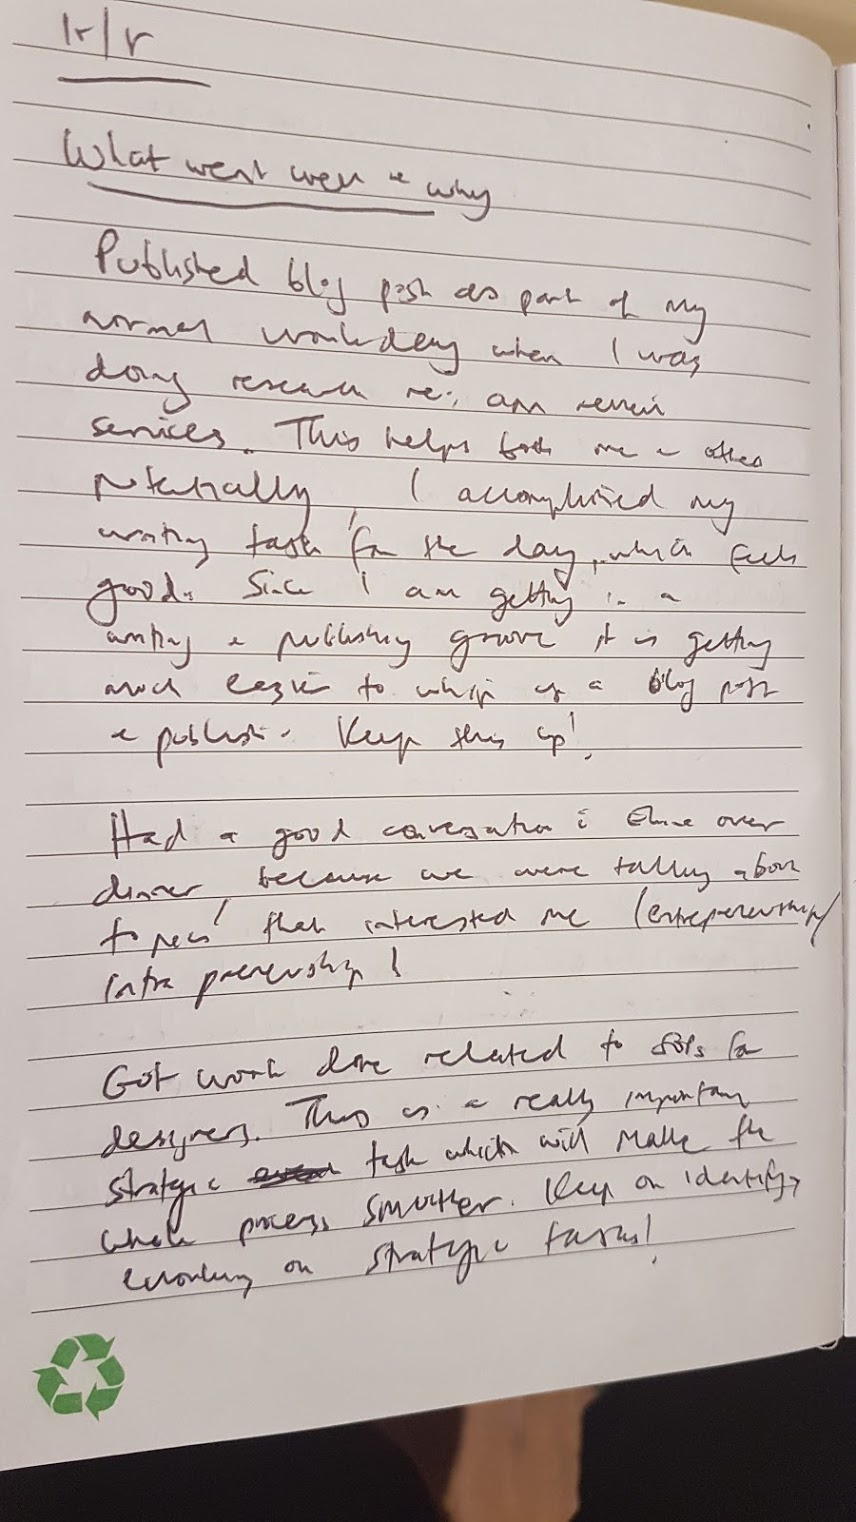 What went well & why
Published blog post as part of my
normal workday when I was
doing research re: app review
services. This helps both me & others
potentially. I accomplished my
writing task for the day, which feels
good. Since I am getting in a
writing & publishing groove it is getting
much easier to whip up a blog post
& publish it. Keep this up!
Had a good conversation over
dinner, because we were talking about
topics that interested me (entrepreneurship/
intrapreneurship)
Got work done related to SOPs for
designers. This is a really important
strategic task which will make the
whole process smoother. Keep on identify
working on strategic tasks!